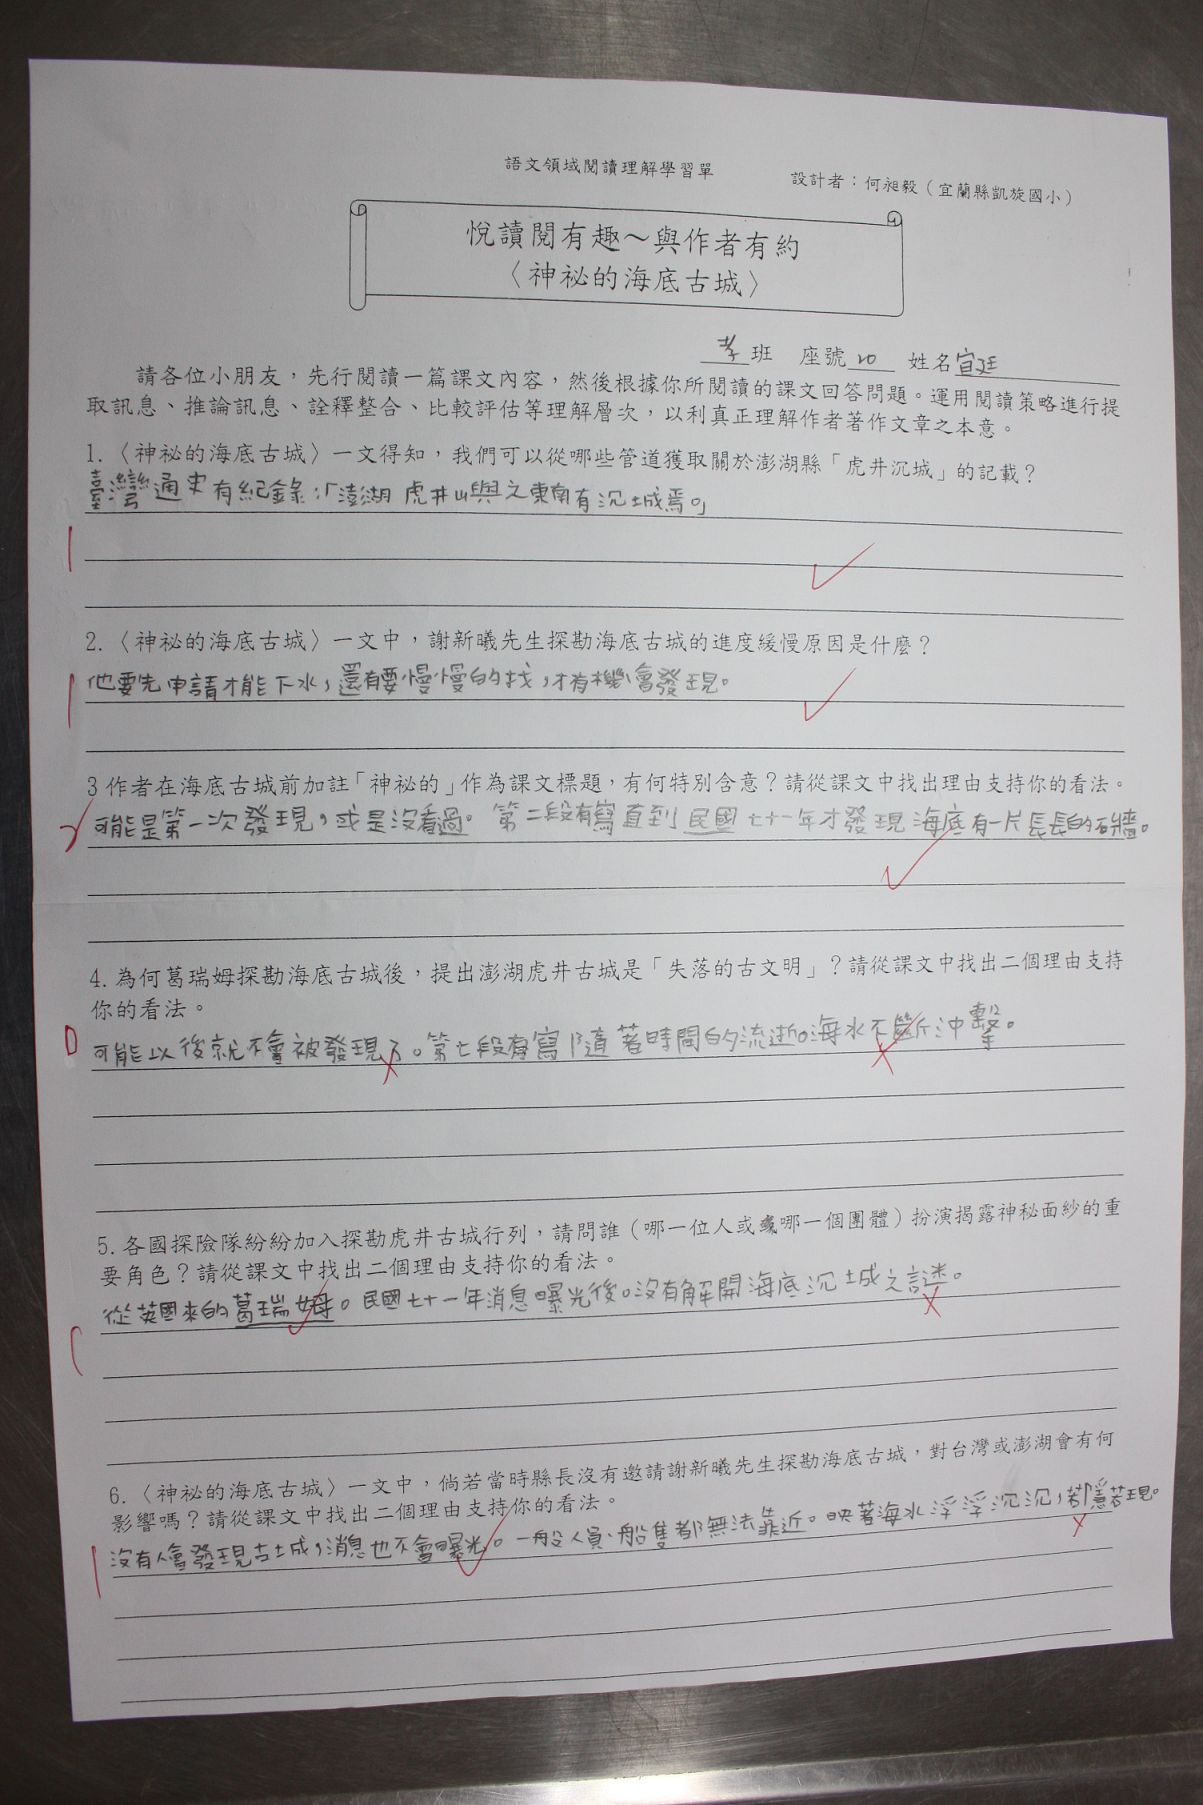 語文領域閱讀理解學習單
設計者：何昶毅（宜蘭縣凱旋國小）
悅讀閱有趣～與作者有約
〈神祕的海底古城〉
孝班 座號20 姓名宣廷
請各位小朋友，先行閱讀一篇課文內容，然後根據你所閱讀的課文回答問題。運用閱讀策略進行提
取訊息、推論訊息、詮釋整合、比較評估等理解層次，以利真正理解作者著作文章之本意。
1.〈神祕的海底古城〉一文得知，我們可以從哪些管道獲取關於澎湖縣「虎井沉城」的記載？
臺灣通史有紀錄：「澎湖虎井山與之東南有沉城焉。」
1
2.〈神祕的海底古城〉一文中，謝新曦先生探勘海底古城的進度緩慢原因是什麼？
他要先申請才能下水，還有要慢慢的找，才有機會發現。
1
3 作者在海底古城前加註「神祕的」作為課文標題，有何特別含意？請從課文中找出理由支持你的看法。
可能是第一次發現，或是沒看過。第二段有寫直到民國七十一年才發現海底有一片長長的石牆。
2
4.為何葛瑞姆探勘海底古城後，提出澎湖虎井古城是「失落的古文明」？請從課文中找出二個理由支持
你的看法。
可能以後就不會被發現了。第七段有寫隨著時間的流逝。海水不斷沖擊。
0
5.各國探險隊紛紛加入探勘虎井古城行列，請問誰（哪一位人或哪一個團體）扮演揭露神秘面紗的重
要角色？請從課文中找出二個理由支持你的看法。
從英國來的葛瑞姆。民國七十一年消息曝光後。沒有解開海底沉城之謎。
1
6.〈神祕的海底古城〉一文中，倘若當時縣長沒有邀請謝新曦先生探勘海底古城，對台灣或澎湖會有何
影響嗎？請從課文中找出二個理由支持你的看法。
沒有人會發現古城，消息也不會曝光。一般人員、船隻都無法靠近。映著海水浮浮沉沉，若隱若現。
1